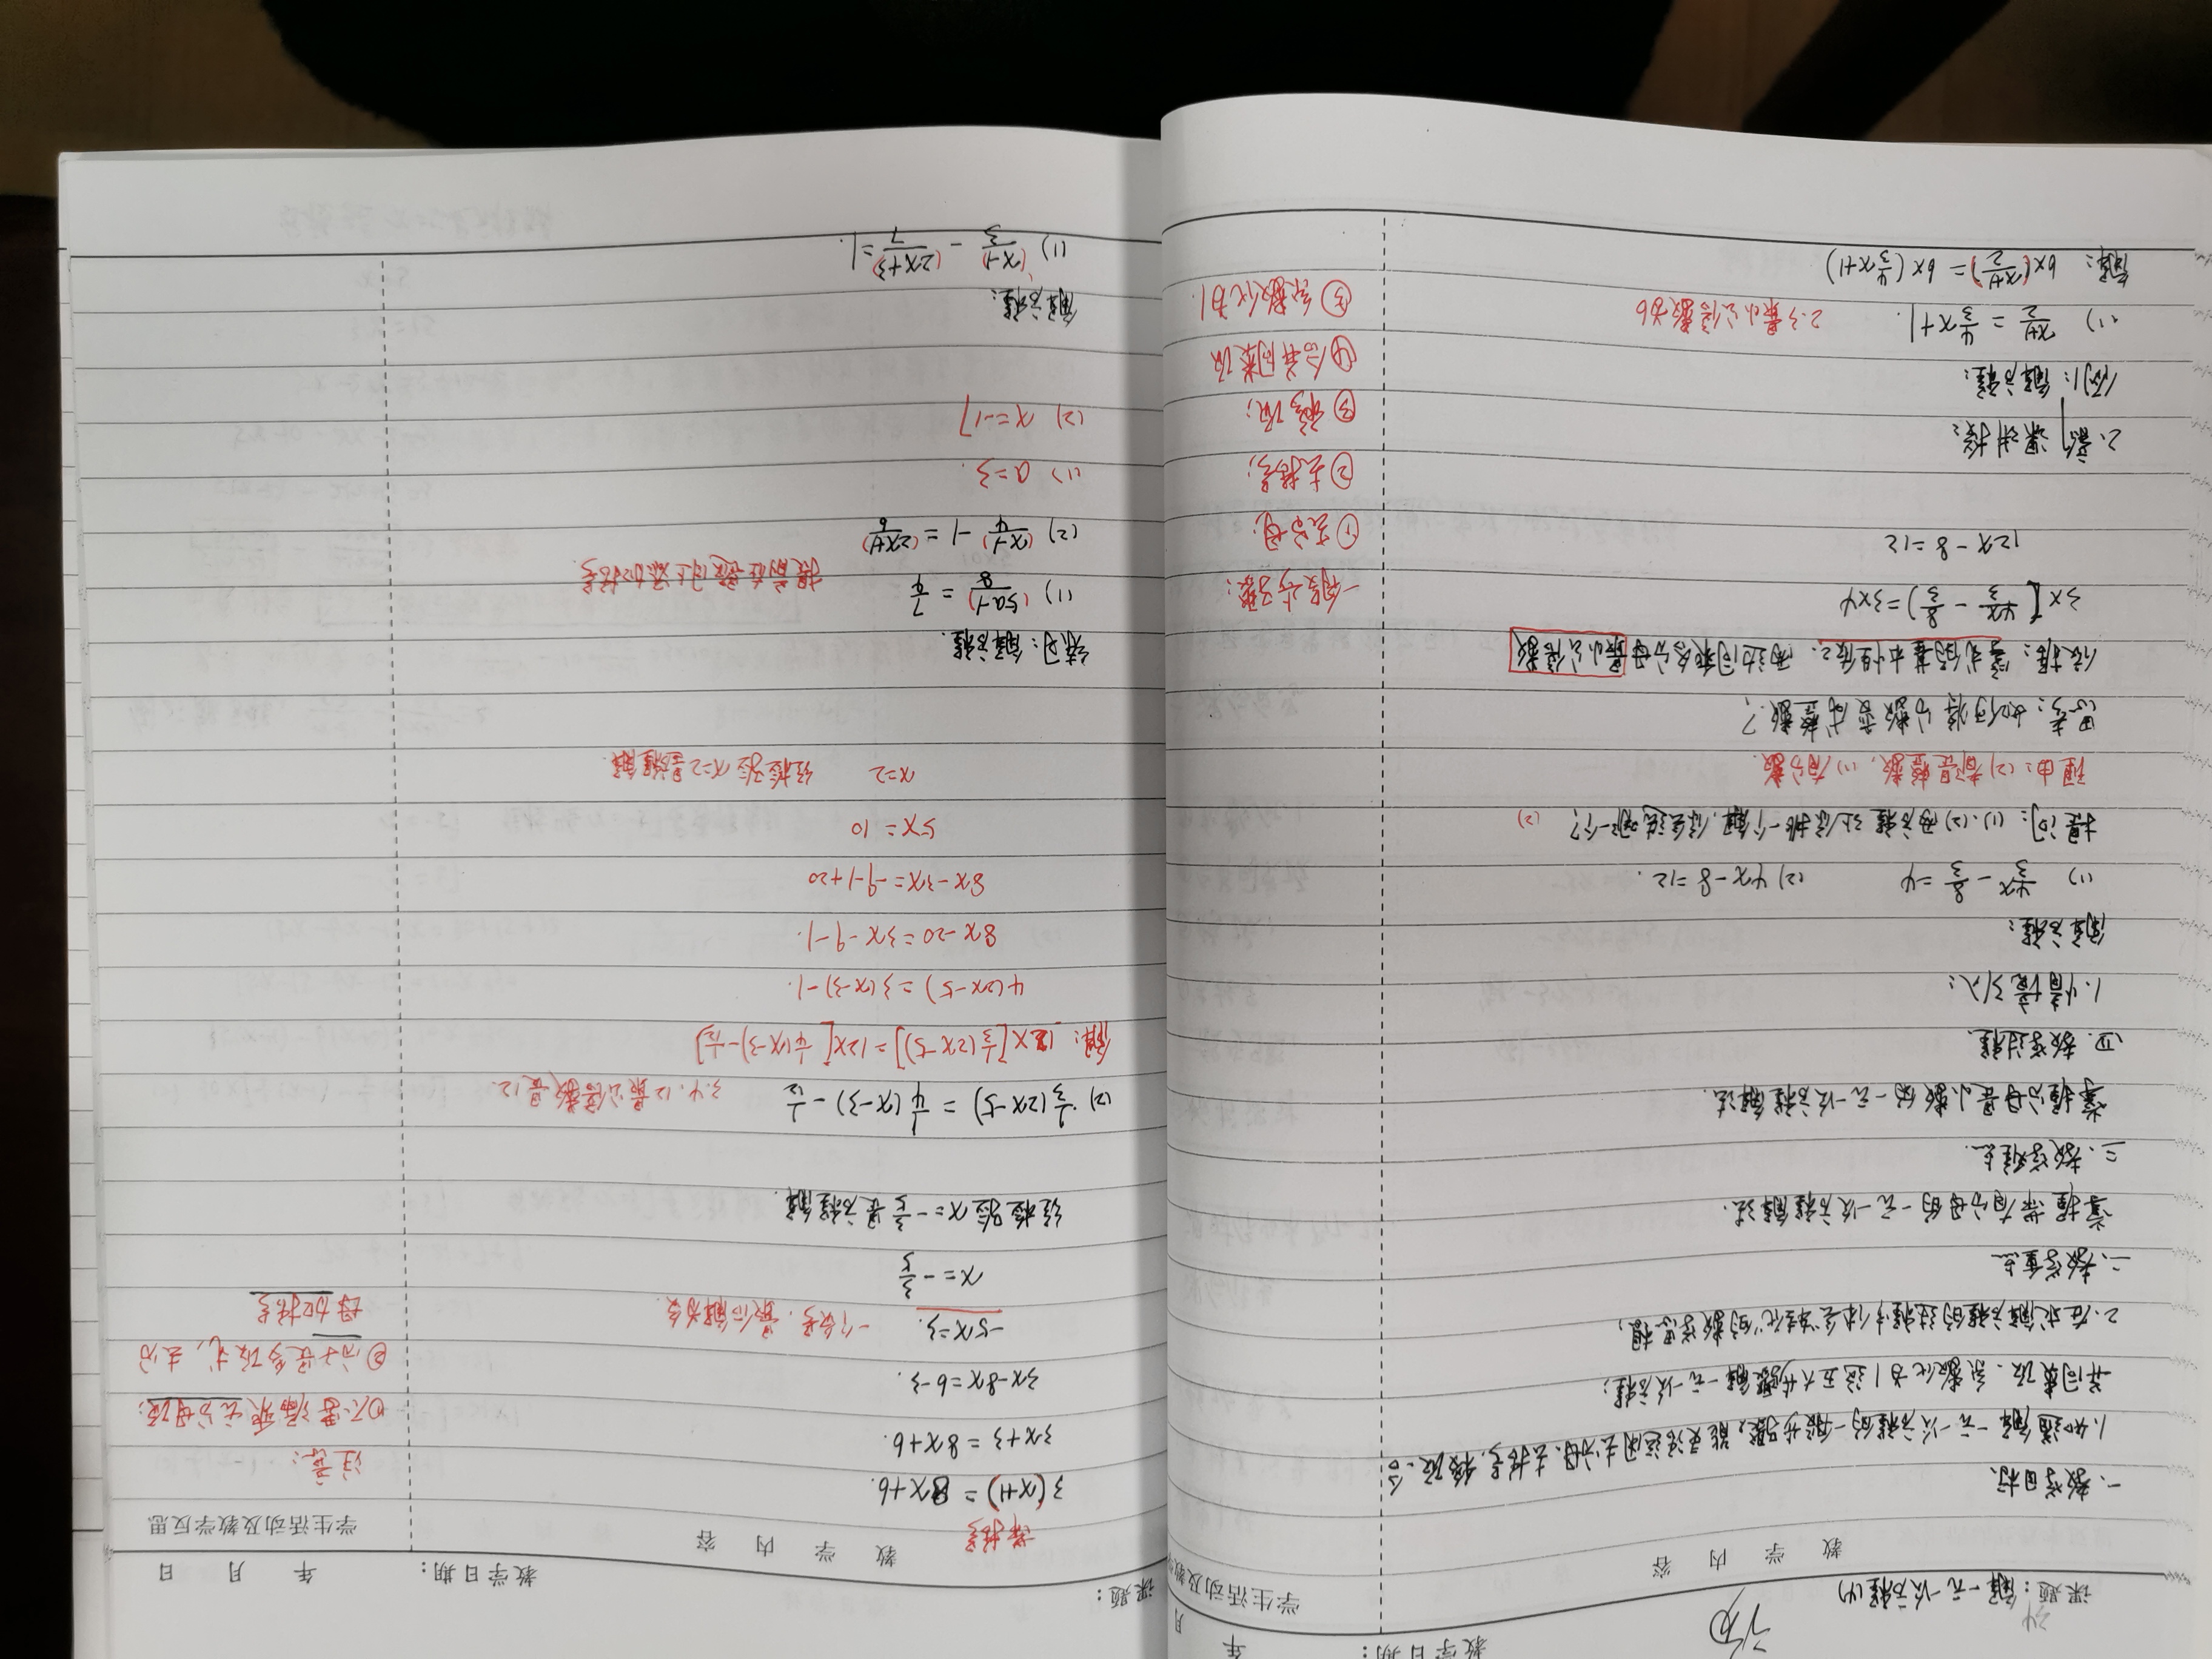 教学日期： 年 月
课题：解一元一次方程(4)
教 学 内 容 学生活动及教学
一、教学目标
1.知道解一元一次方程的一般步骤，能灵活运用去分母、去括号、移项、合
并同类项、系数化为1这五大步骤解一元一次方程；
2.在求解方程的过程中体会"转化"的数学思想；
二、教学重点
掌握带有分母的一元一次方程解法.
三、教学难点
掌握分母是小数的一元一次方程解法.
四、教学过程
1.情境引入：
解方程：
(1) 4x/3 - 8/3 = 4 (2) 4x-8=12.
提问：(1)、(2)两方程让你挑一个解，你会选哪一个？ (2)
理由：(2)都是整数，(1)有分数.
思考：如何将分数变成整数？
依据：等式的基本性质2：两边同乘各分母最小公倍数
3×[4x/3 - 8/3)=3×4
12x-8=12
2.新课讲授：
例1：解方程：
(1) x+1/2 = 4/3x+1. 2.3最小公倍数为6
解：6×(x+1/2)=6×(4/3x+1)
一般步骤：
①去分母；
②去括号；
③移项；
④合并同类项
⑤系数化为1.
课题： 教学日期： 年 月 日
教 学 内 容 学生活动及教学反思
带括号
3(x+1)=8x+6.
3x+3=8x+6.
3x-8x=6-3.
-5x=3. 一个负号，最后解为负
x=-3/5
经检验x=-3/5是方程解
注意：
①不要漏乘无分母项；
②分子是多项式，去分
母加括号
(2) 1/3(2x-5)=1/4(x-3)-1/12 3.4.12最小公倍数是12.
解：12×[1/3(2x-5)]=12×[1/4(x-3)-1/12]
4(2x-5)=3(x-3)-1.
8x-20=3x-9-1.
8x-3x=-9-1+20
5x=10
x=2 经检验x=2是方程解.
练习：解方程.
(1) (5a-1)/8 = 7/4 提前在爱问上添加括号.
(2) (x-1)/4 -1 = (2x+1)/6
(1) a=3.
(2) x=-17
解方程：
(1) (x-1)/3 - (2x+3)/7 =1.